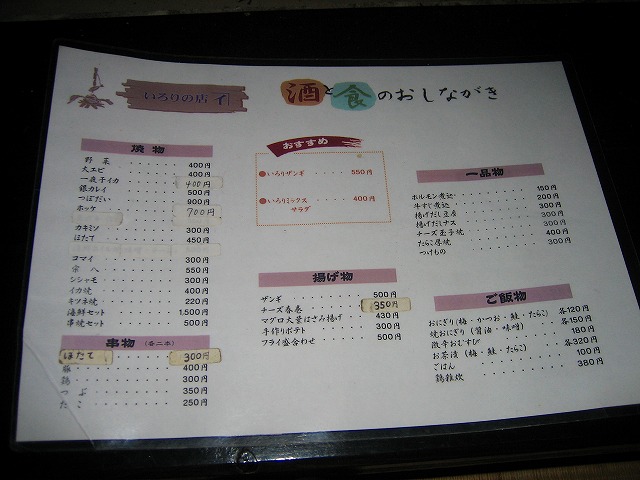 いろりの店
酒と食のおしながき
焼物
野菜 400円
大エビ 400円
一夜干イカ 400円
銀カレイ 500円
つぼだい 900円
ホッケ 700円
カキミソ 300円
ほたて 450円
コマイ 300円
宗八 550円
シシャモ 300円
イカ焼 400円
キツネ焼 220円
海鮮セット 1,500円
串焼セット 500円
串物 (各二本)
ほたて 300円
豚 400円
鶏 300円
つぶ 350円
たこ 250円
おすすめ
●いろりザンギ 550円
●いろりミックスサラダ 400円
揚げ物
ザンギ 500円
チーズ春巻 350円
マグロ大葉はさみ揚げ 430円
手作りポテト 300円
フライ盛合わせ 500円
一品物
150円
ホルモン煮込 200円
牛すじ煮込 300円
揚げだし豆腐 300円
揚げだしナス 300円
チーズ玉子焼 400円
たらこ厚焼 300円
つけもの
ご飯物
おにぎり(梅・かつお・鮭・たらこ) 各120円
焼おにぎり(醤油・味噌) 各150円
激辛おむすび 180円
お茶漬(梅・鮭・たらこ) 各320円
ごはん 100円
鶏雑炊 380円